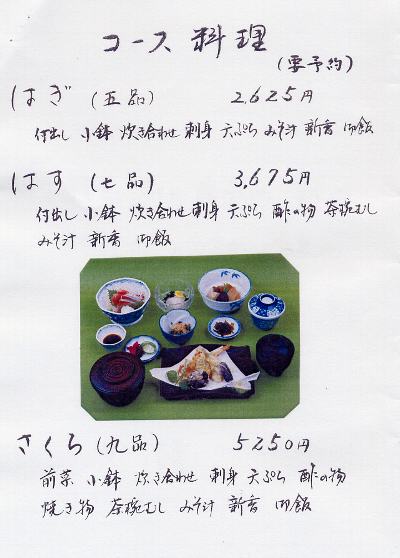 コース料理
(要予約)
はぎ(五品) 2,625円
付出し 小鉢 炊き合わせ 刺身 天ぷら みそ汁 新香 御飯
はす(七品) 3,675円
付出し 小鉢 炊き合わせ 刺身 天ぷら 酢の物 茶碗むし
みそ汁 新香 御飯
さくら(九品) 5250円
前菜 小鉢 炊き合わせ 刺身 天ぷら 酢の物
焼き物 茶碗むし みそ汁 新香 御飯